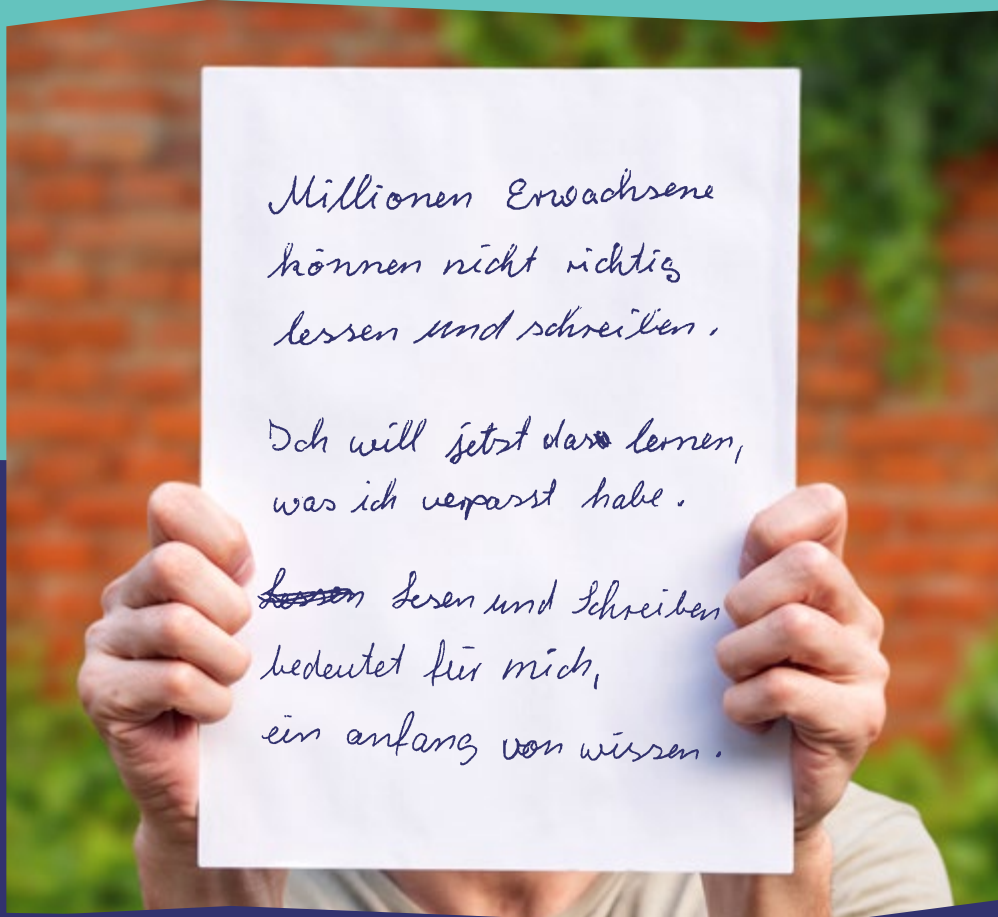 Millionen Erwachsene
können nicht richtig
lessen und schreiben.
Ich will jetzt das lernen,
was ich verpasst habe.
Lessen Lesen und Schreiben
bedeutet für mich,
ein anfang von wissen.